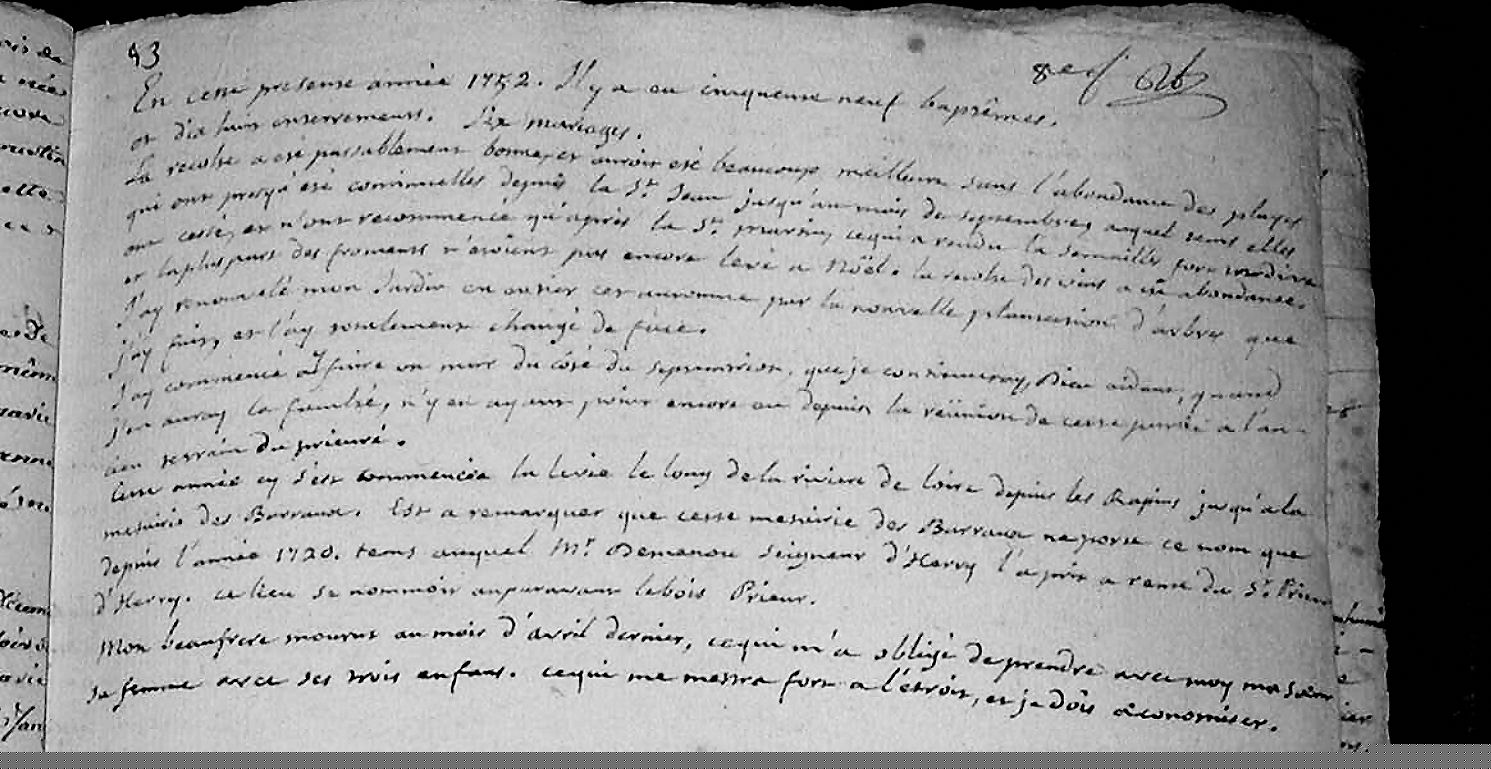 43
En cette presente année 1752. Il y a eu cinquente neuf baptêmes.
et dix huit enterrements. Six mariages.
La recolte a eté passablement bonne, et auroit eté beaucoup meilleure sans l'abondance des pluyes
qui ont presqu'eté continuelles depuis la St. Jean jusqu'au mois de septembre, auquel tems elles
ont cessé, et n'ont recommencé qu'après la St. martin, cequi a rendu la semaille fort tardive
et laplus part des froments n'etoient pas encore levé a Nöel. la recolte des vins a eté abondante.
J'ay renouvelé mon Jardin en entier cet automne par la nouvelle plantation d'arbres que
j'ay fait, et l'ay totalement changé de face.
J'ay commencé a faire un mur du côté du septentrion, que je continueray, Dieu aidant, quand
j'en auray la faculté, n'y en ayant point encore eu depuis la réünion de cette partie a l'an-
cien terrain du prieuré.
Cette année cy s'est commencée la levée le long de la riviere de loire depuis les Rapins jusqu'a la
metairie des Barraux. Est a remarquer que cette metairie des Barraux ne porte ce nom que
depuis l'année 1720. tems auquel Mr. Demanou seigneur d'Herry l'a prit a rente du Sr. Prieur
d'Herry. ce lieu se nommoit auparavant le bois Prieur.
Mon beaufrere mourut au mois d'avril dernier, cequi m'a obligé de prendre avec moy ma sœur
sa femme avec ses trois enfans. cequi me mettra fort a l'étroit, et je dois œconomiser.